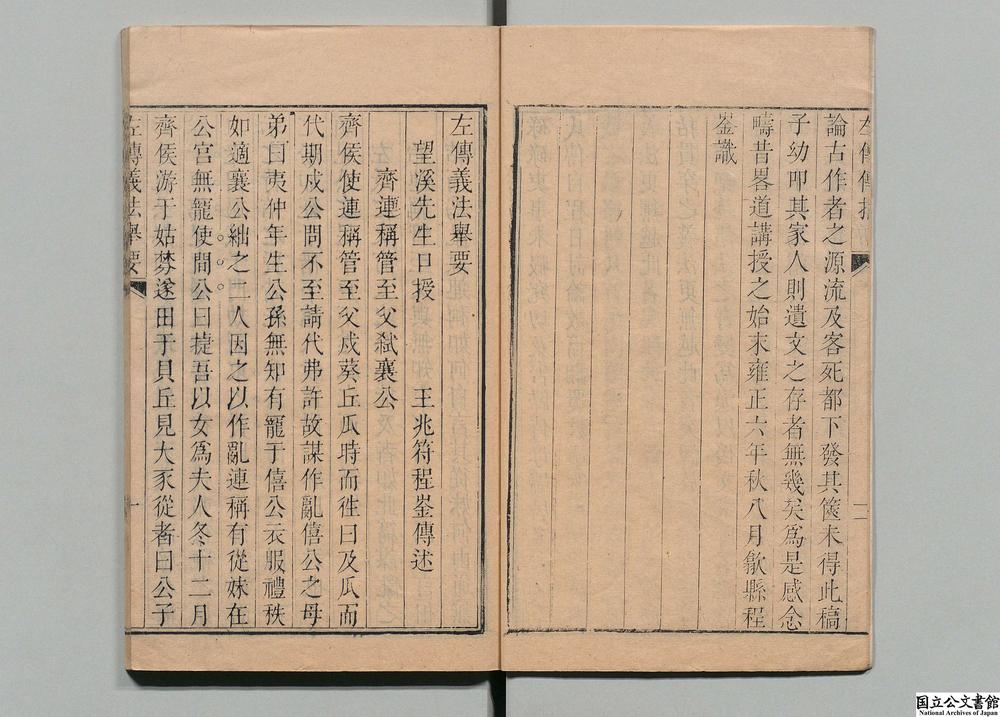 論古作者之源流及客死都下發其篋未得此稿
子幼叩其家人則遺文之存者無幾矣爲是感念
疇昔畧道講授之始末雍正六年秋八月歙縣程
崟識
二
左傳義法舉要
望溪先生口授　王兆符程崟傳述
齊連稱管至父弑襄公
齊侯使連稱管至父戍葵丘瓜時而徃曰及瓜而
代期戍公問不至請代弗許故謀作亂僖公之母
弟曰夷仲年生公孫無知有寵于僖公衣服禮秩
如適襄公絀之二人因之以作亂連稱有從妹在
公宮無寵使間公曰捷吾以女爲夫人冬十二月
齊侯游于姑棼遂田于貝丘見大豕從者曰公子
左傳義法舉要
一
国立公文書館
National Archives of Japan